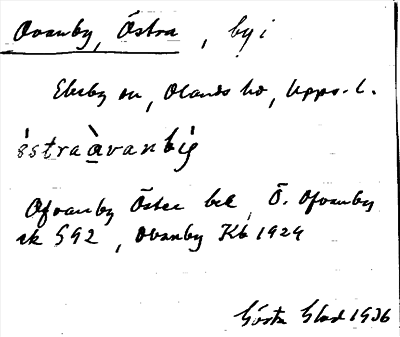 Ovanby, Östra, by i
Ekeby sn, Olands hd, Upps. l.
östra àvanbẏ
Ofvanby Öster bel, Ö. Ofvanby
ek 592, Ovanby Kb 1929
Gösta Glad 1936